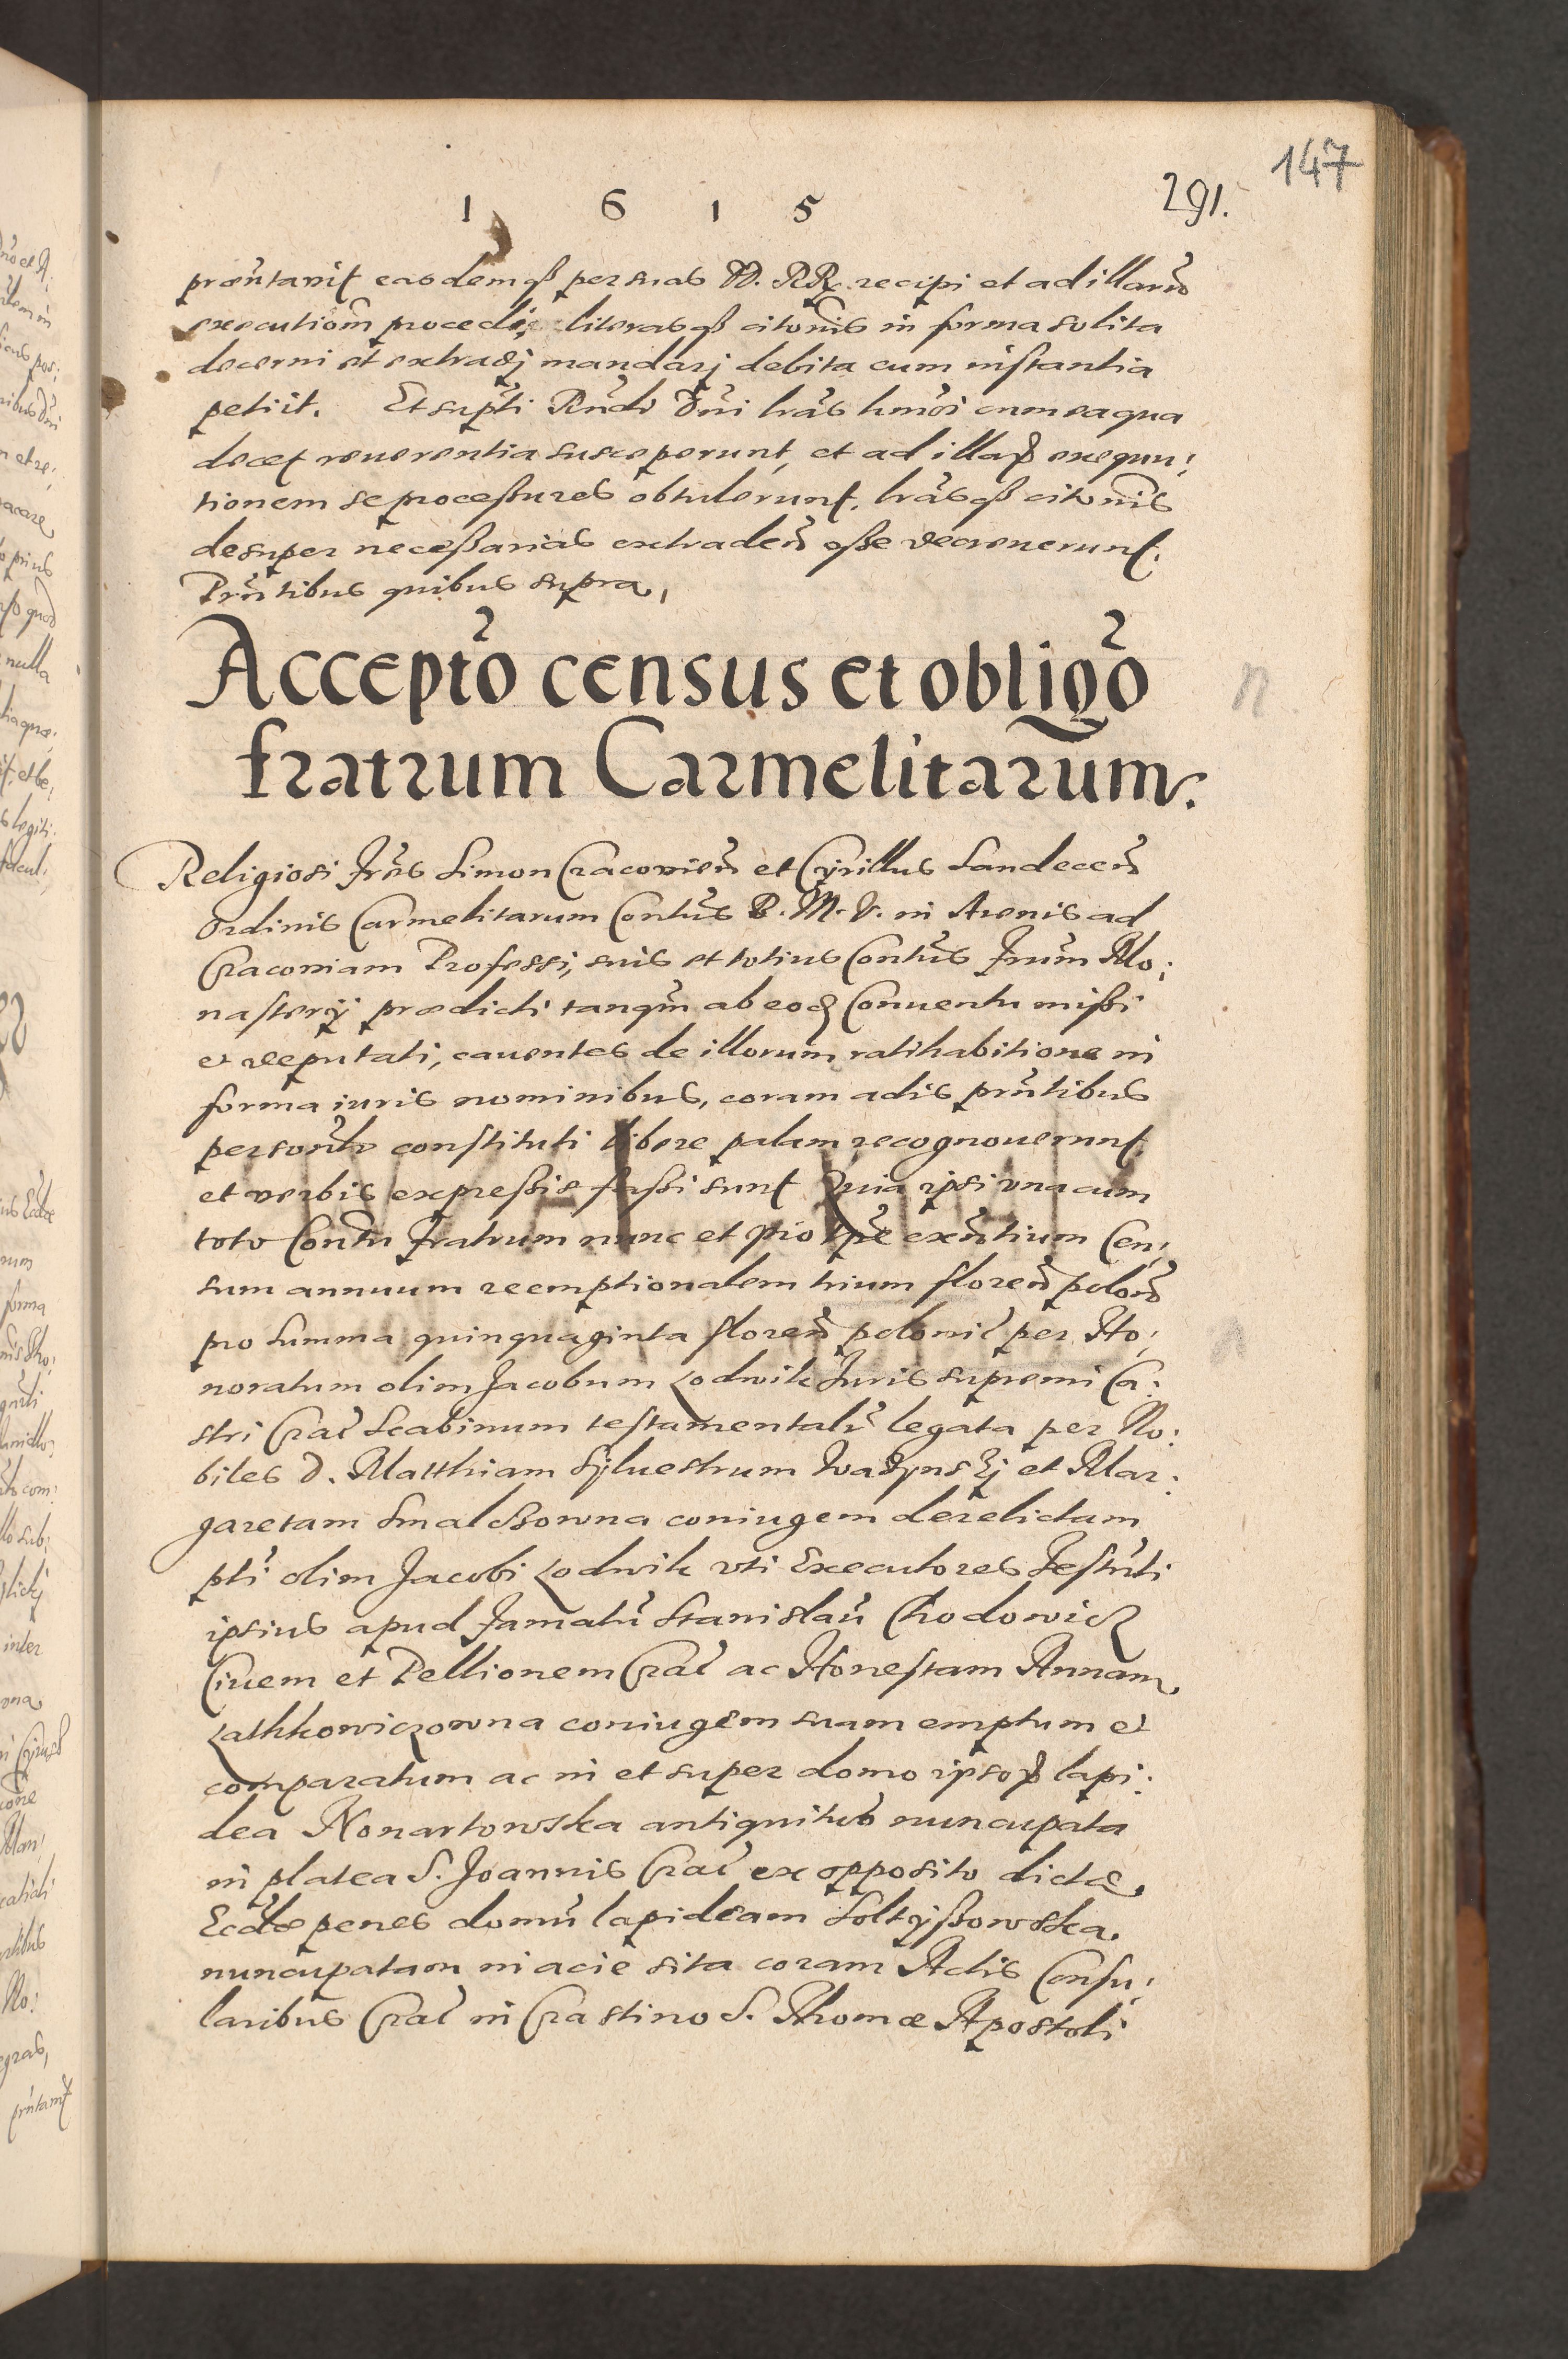 147
1 6 1 5
291.
præñtavit easdemqꝫ per suas DD. RR recipi et ad illarũ
executiõm procedi, literasqꝫ citoñis in forma solita
decerni et extradj mandarj debita cum instantia
petiit. Et sup̃ti Rñdi Dñi lrãs hmõi cum ea qua
decet reuerentia susceperunt, et ad illaꝝ exequu:
tionem se processuros obtulerunt, lrãsqꝫ citoñis
desuper necessarias extradeñ esse decreuerunt.
Prñtibus quibus supra,
Acceptõ census et obligõ
fratrum Carmelitarum.
Religiosi frẽs Simon Cracovieñ et Cyrillus Sandeceñ
Ordinis Carmelitarum Contũs B. M. V. in Arenis ad
Cracoviam Professi, suis et totius Contũs frum̃ Mo:
nasterij prædicti tanqm̃ ab eod Conuentu missi
et deputati, cauentes de illorum ratihabitione in
forma iuris nominibus, coram actis prñtibus
persoñlr constituti libere palam recognouerunt
et verbis expressis fassi sunt Quia ipsi una cum
toto Contũ fratrum nunc et pro tp̃e exñtium Cen:
sum annuum reemptionalem trium floreñ poloñ
pro summa quinquaginta floreñ poloniĉ per Ho:
noratum olim Jacobum Lodwik Juris supremi Ca:
stri Craĉ Scabinum testamentalr̃ legata per No:
biles D. Matthiam Syluestrum Wadynskj et Mar:
garetam Smalczowna coniugem derelictam
pti olim Jacobi Lodwik uti Executores Testm̃ti
ipsius apud famatũ Stanislaũ Chodowicz
Ciuem et Pellionem Craĉ ac Honestam Annam
Lathkowiczowna coniugem suam emptum et
comparatum ac in et super domo ipsoꝝ lapi:
dea Nonartowska antiquitus nuncupata
in platea S. Joannis Craĉ ex opposito dictæ
Ecclæ penes domũ lapideam Soltyssowska
nuncupatam in acie sita coram Actis Consu:
laribus Craĉ in Crastino S. Thomæ Apostoli